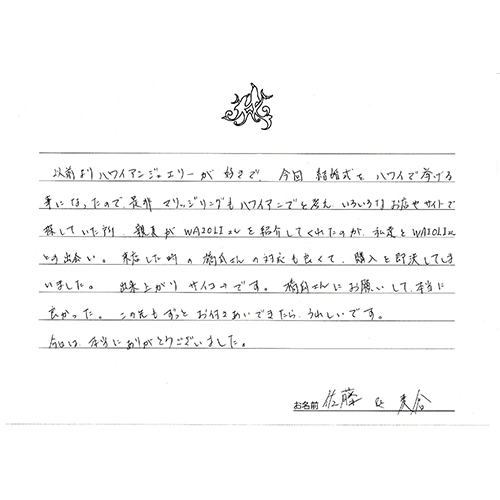 以前よりハワイアンジュエリーが好きで、今回 結婚式を ハワイで挙げる
事になったので、是非 マリッジリングもハワイアンでと考え いろいろなお店やサイトで
探していた所、親友が WAIOLIさんを紹介してくれたのが、私達とWAIOLIさん
との出会い。来店した時の 橋爪さんの対応も良くて、購入を即決してしま
いました。出来上がり サイコーです。橋爪さんにお願いして、本当に
良かった。この先も ずっと お付きあいできたら、うれしいです。
今日は、本当にありがとうございました。
お名前 佐藤